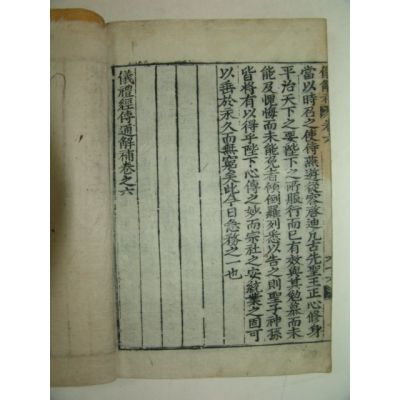 當以時召之使侍燕游從容啓迪凡古先聖王正心修身
平治天下之要陛下之所服行而已有效與其勉慕而未
能及愧悔而未能免者傾倒羅列悉以告之則聖子神孫
皆將有以得乎陛下心傳之妙而宗社之安統業之固可
以垂於永久而無窮矣此今日急務之一也
儀禮經傳通解補卷之六